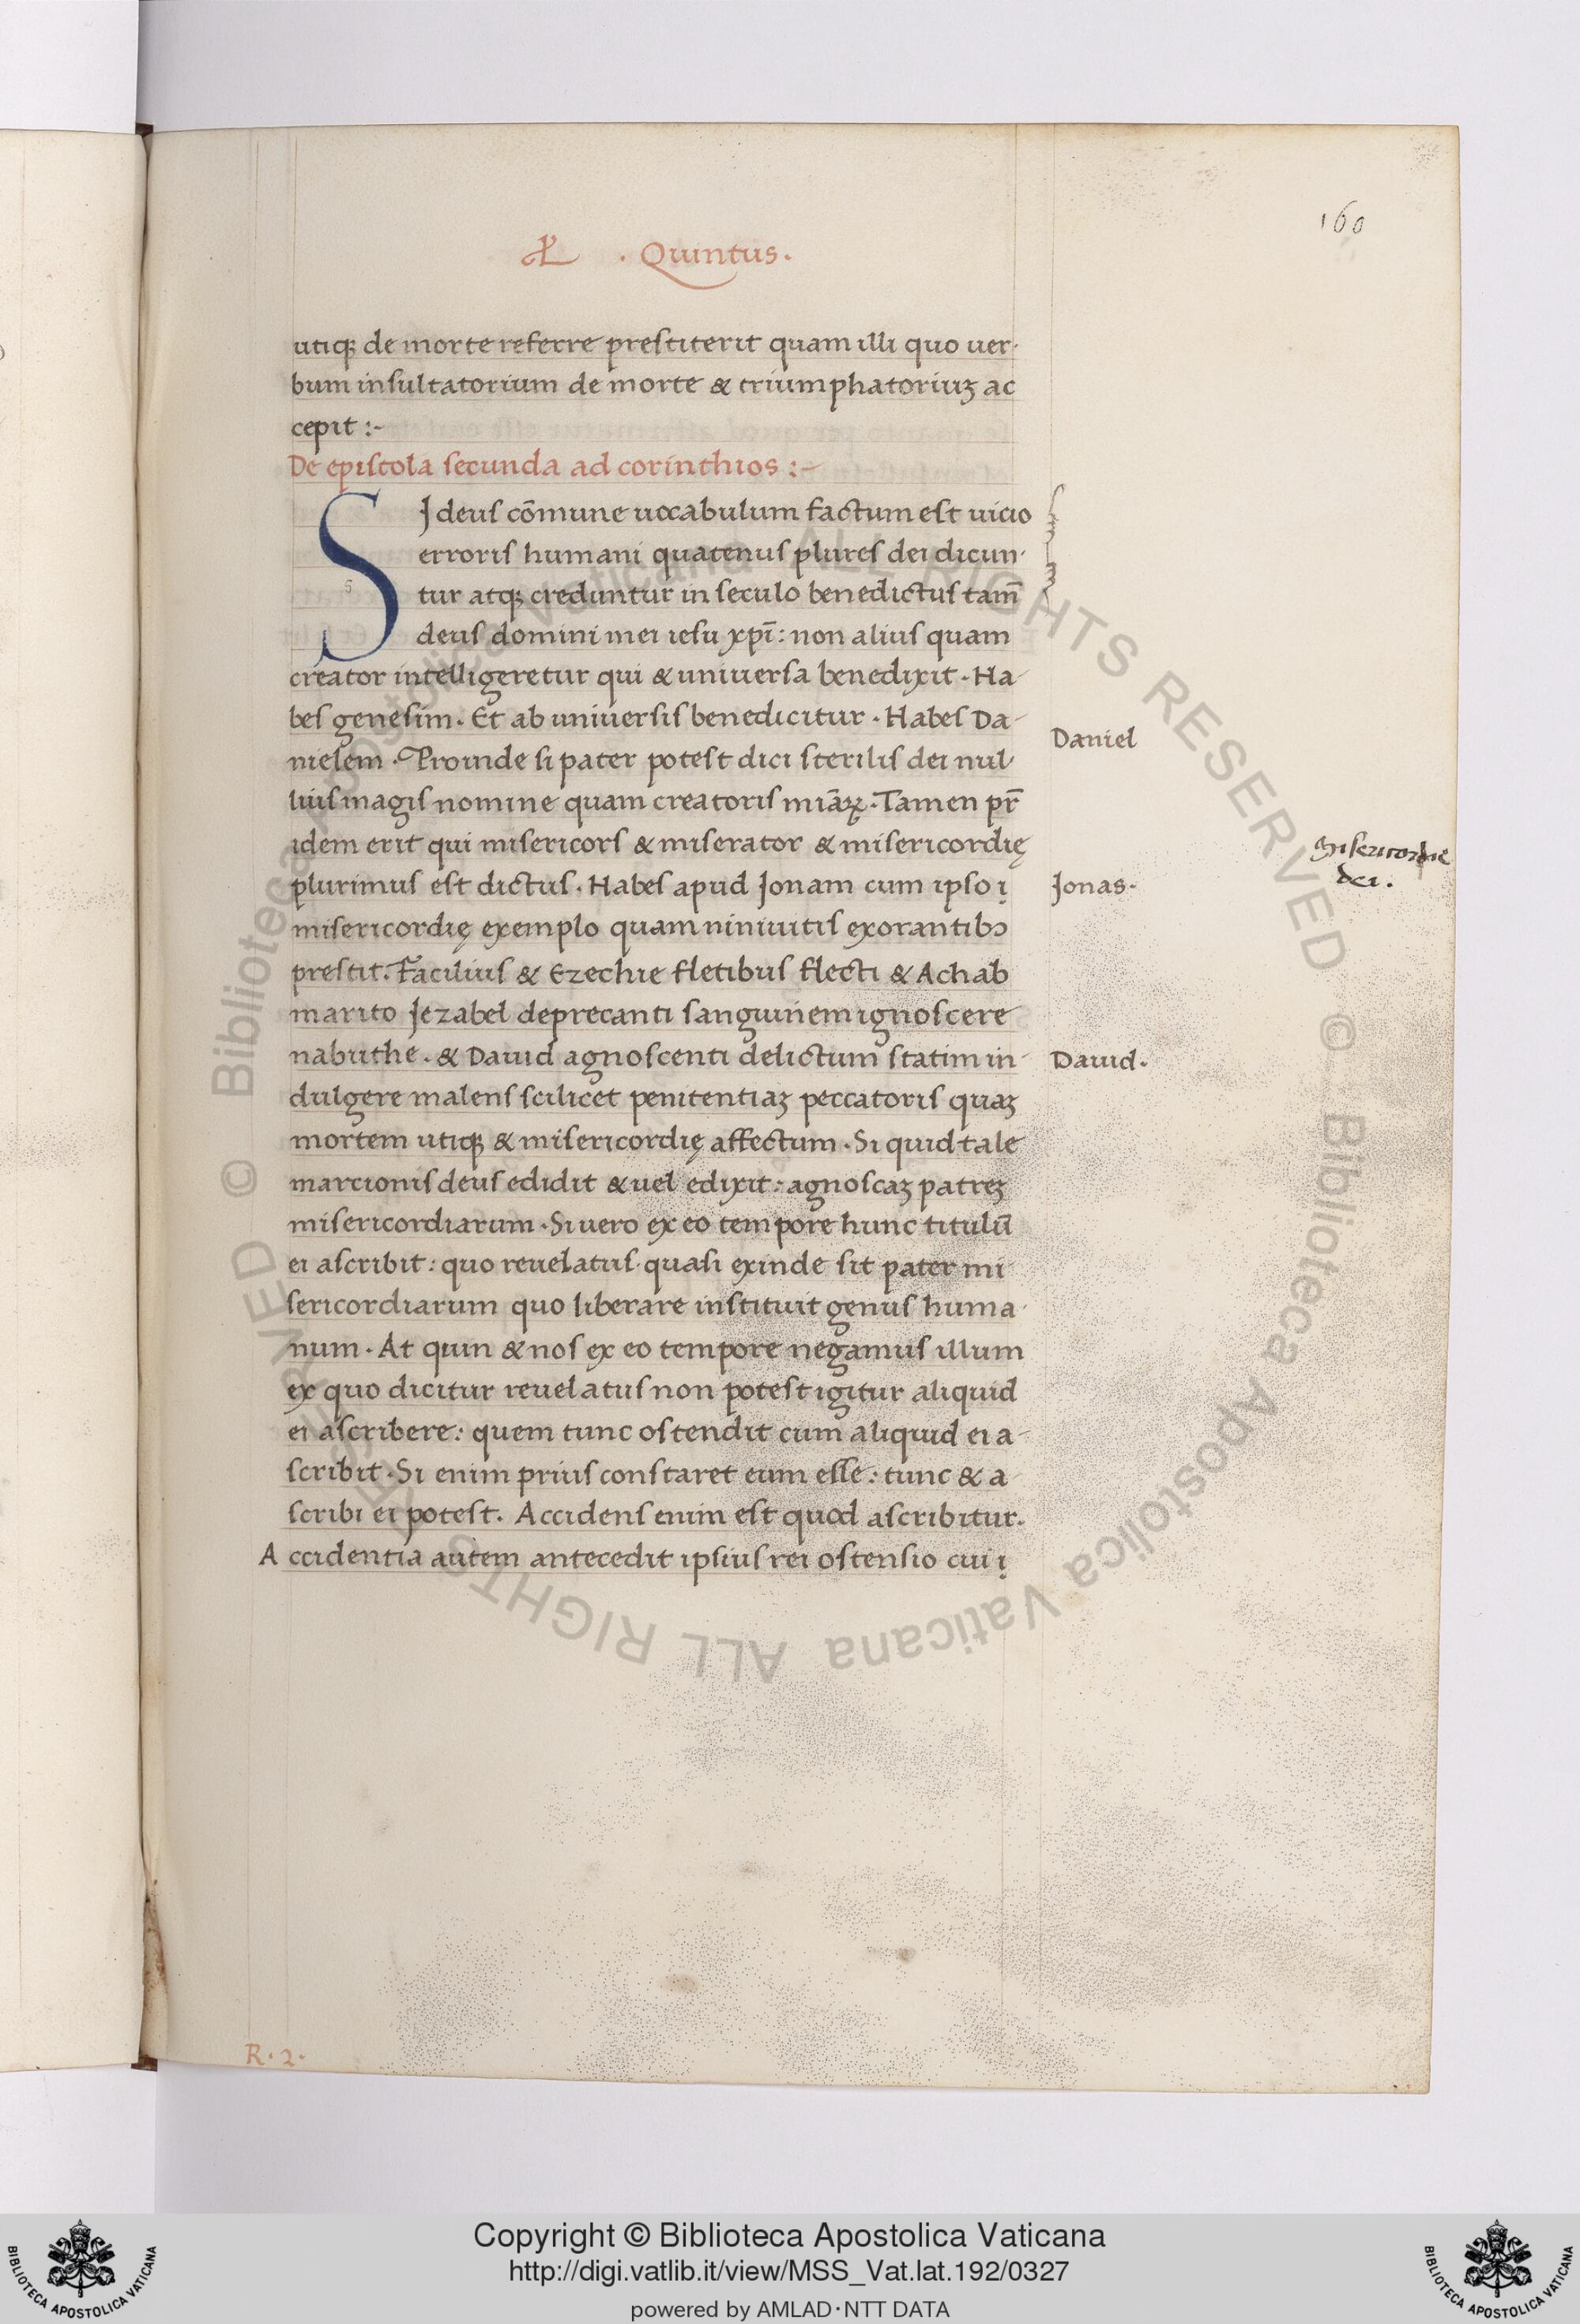 160
. Quintus.
utiqꝫ de morte referre prestiterit quam illi quo uer-
bum insultatorium de morte & triumphatoriuꝫ ac
cepit :-
De epistola secunda ad corinthios :-
SI deus cōmune uocabulum factum est uicio
erroris humani quatenus plures dei dicun-
tur atqꝫ creduntur in seculo benedictus tam̄
deus domini mei iesu xp̄i: non alius quam
creator intelligeretur qui & uniuersa benedixit. Ha-
bes genesim. Et ab uniuersis benedicitur. Habes Da-
nielem. Proinde si pater potest dici sterilis dei nul-
lius magis nomine quam creatoris miāꝝ. Tamen pr̄
idem erit qui misericors & miserator & misericordię
plurimus est dictus. Habes apud Jonam cum ipso i
misericordię exemplo quam niniuitis exorantibꝫ
prestit. Facilius & Ezechie fletibus flecti & Achab
marito Jezabel deprecanti sanguinem ignoscere
nabuthe. & Dauid agnoscenti delictum statim in-
dulgere malens scilicet penitentiaꝫ peccatoris quaꝫ
mortem utiqꝫ & misericordię affectum. Si quid tale
marcionis deus edidit & uel edixit: agnoscaꝫ patreꝫ
misericordiarum. Si uero ex eo tempore hunc titulū
ei ascribit: quo reuelatus. quasi exinde sit pater mi
sericordiarum quo liberare instituit genus huma-
num. At quin & nos ex eo tempore negamus illum
ex quo dicitur reuelatus non potest igitur aliquid
ei ascribere: quem tunc ostendit cum aliquid ei a-
scribit. Si enim prius constaret eum esse: tunc & a
scribi ei potest. Accidens enim est quod ascribitur.
Accidentia autem antecedit ipsius rei ostensio cui i
Daniel
misericordie
dei.
Jonas.
Dauid.
R. 2.
© Biblioteca Apostolica Vaticana ALL RIGHTS RESERVED © Biblioteca Apostolica Vaticana ALL RIGHTS RESERVED
Copyright © Biblioteca Apostolica Vaticana
http://digi.vatlib.it/view/MSS_Vat.lat.192/0327
powered by AMLAD・NTT DATA
BIBLIOTECA APOSTOLICA VATICANA
BIBLIOTECA APOSTOLICA VATICANA